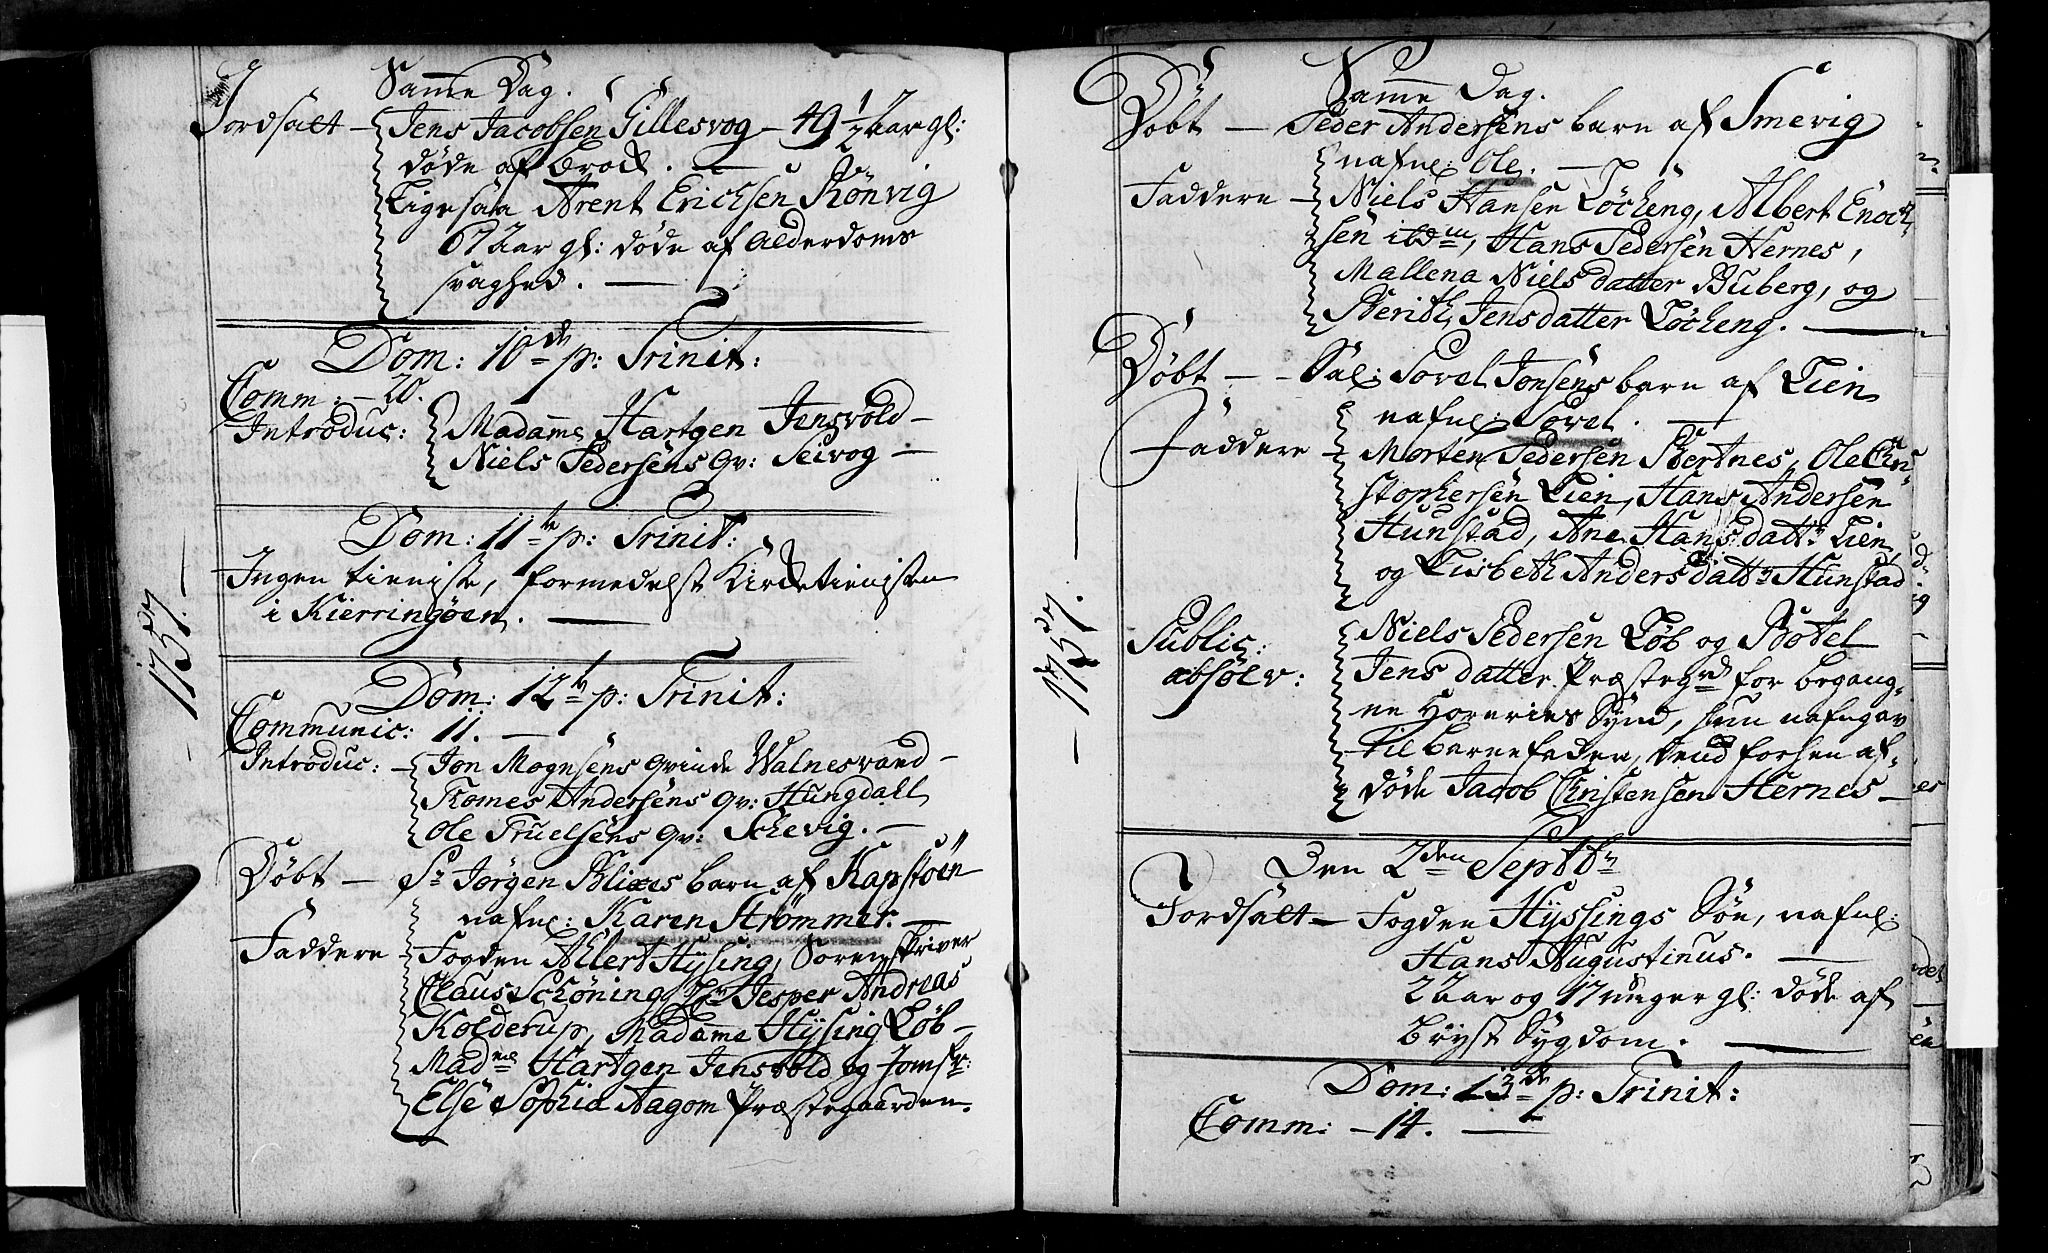 Samme Dag.
Jordsatt – Jens Jacobsen Gillesvog – 49 1/2 Aar gl:
døde af Brock. —
Ligesaa Arent Erichsen Rönvig
67 Aar gl: døde af Alderdoms
svaghed. —
Dom: 10de p: Trinit:
Comm: – 20.
Introduc: Madame Hartgen Jensvold –
Niels Pedersens Qv: Seivog –
Dom: 11te p: Trinit:
Ingen tieniste, formedelst Kirketienisten
i Kierringøen. —
1757.
Dom: 12te p: Trinit:
Communic: 11. —
Introduc: – Jon Mognsens Qvinde Walnesvand –
Tomes Andersens Qv: Hungdall
Ole Truelsens Qv: Schevig. –
Døbt – Sr Jørgen Blixes barn af Kapstøen
nafnl: Karen Strømmer. –
Faddere – Fogden Allert Hysing, Sorenskriver
Claus Schöning, Hr Jesper Andreas
Kolderup, Madame Hysing Løb –
Madme Hartgen Jensvold og Jomfr:
Else Sophia Aagom Præstegaarden.
Samme Dag.
Døbt – Peder Andersens barn af Smevig
nafnl: Ole. —
Faddere – Niels Hansen Löcheng, Albert Enoch
sen ibdm, Hans Pedersen Hernes,
Mallena Nielsdatter Buberg, og
Berith Jensdatter Löcheng. —
Døbt – – Sal: Sovel Jonsens barn af Lien
nafnl: Sovel. —
Faddere – Morten Pedersen Bertnes, Ole Chri-
stophersen Lien, Hans Andersen
Hunstad, Ane Hansdattr Lien,
og Lisbeth Andersdattr Hunstad
1757.
Public: Niels Pedersen Løb og Bodel
absolv: Jensdatter Præstegrd for begang-
ne Horeries Synd, hun nafngav
til barnefader, dend forhen af-
døde Jacob Christensen Hernes –
Den 2den Septbr
Jordsatt – Fogden Hyssings Søn, nafnl:
Hans Augustinus. —
2 Aar og 17 uger gl: døde af
Bryst Sygdom. —
Dom: 13de p: Trinit:
Comm: – 14. —